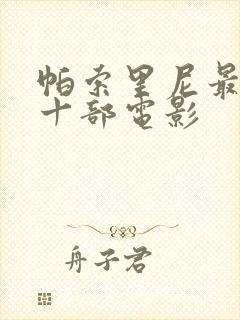 帕索里尼最
十部电影
舟子君